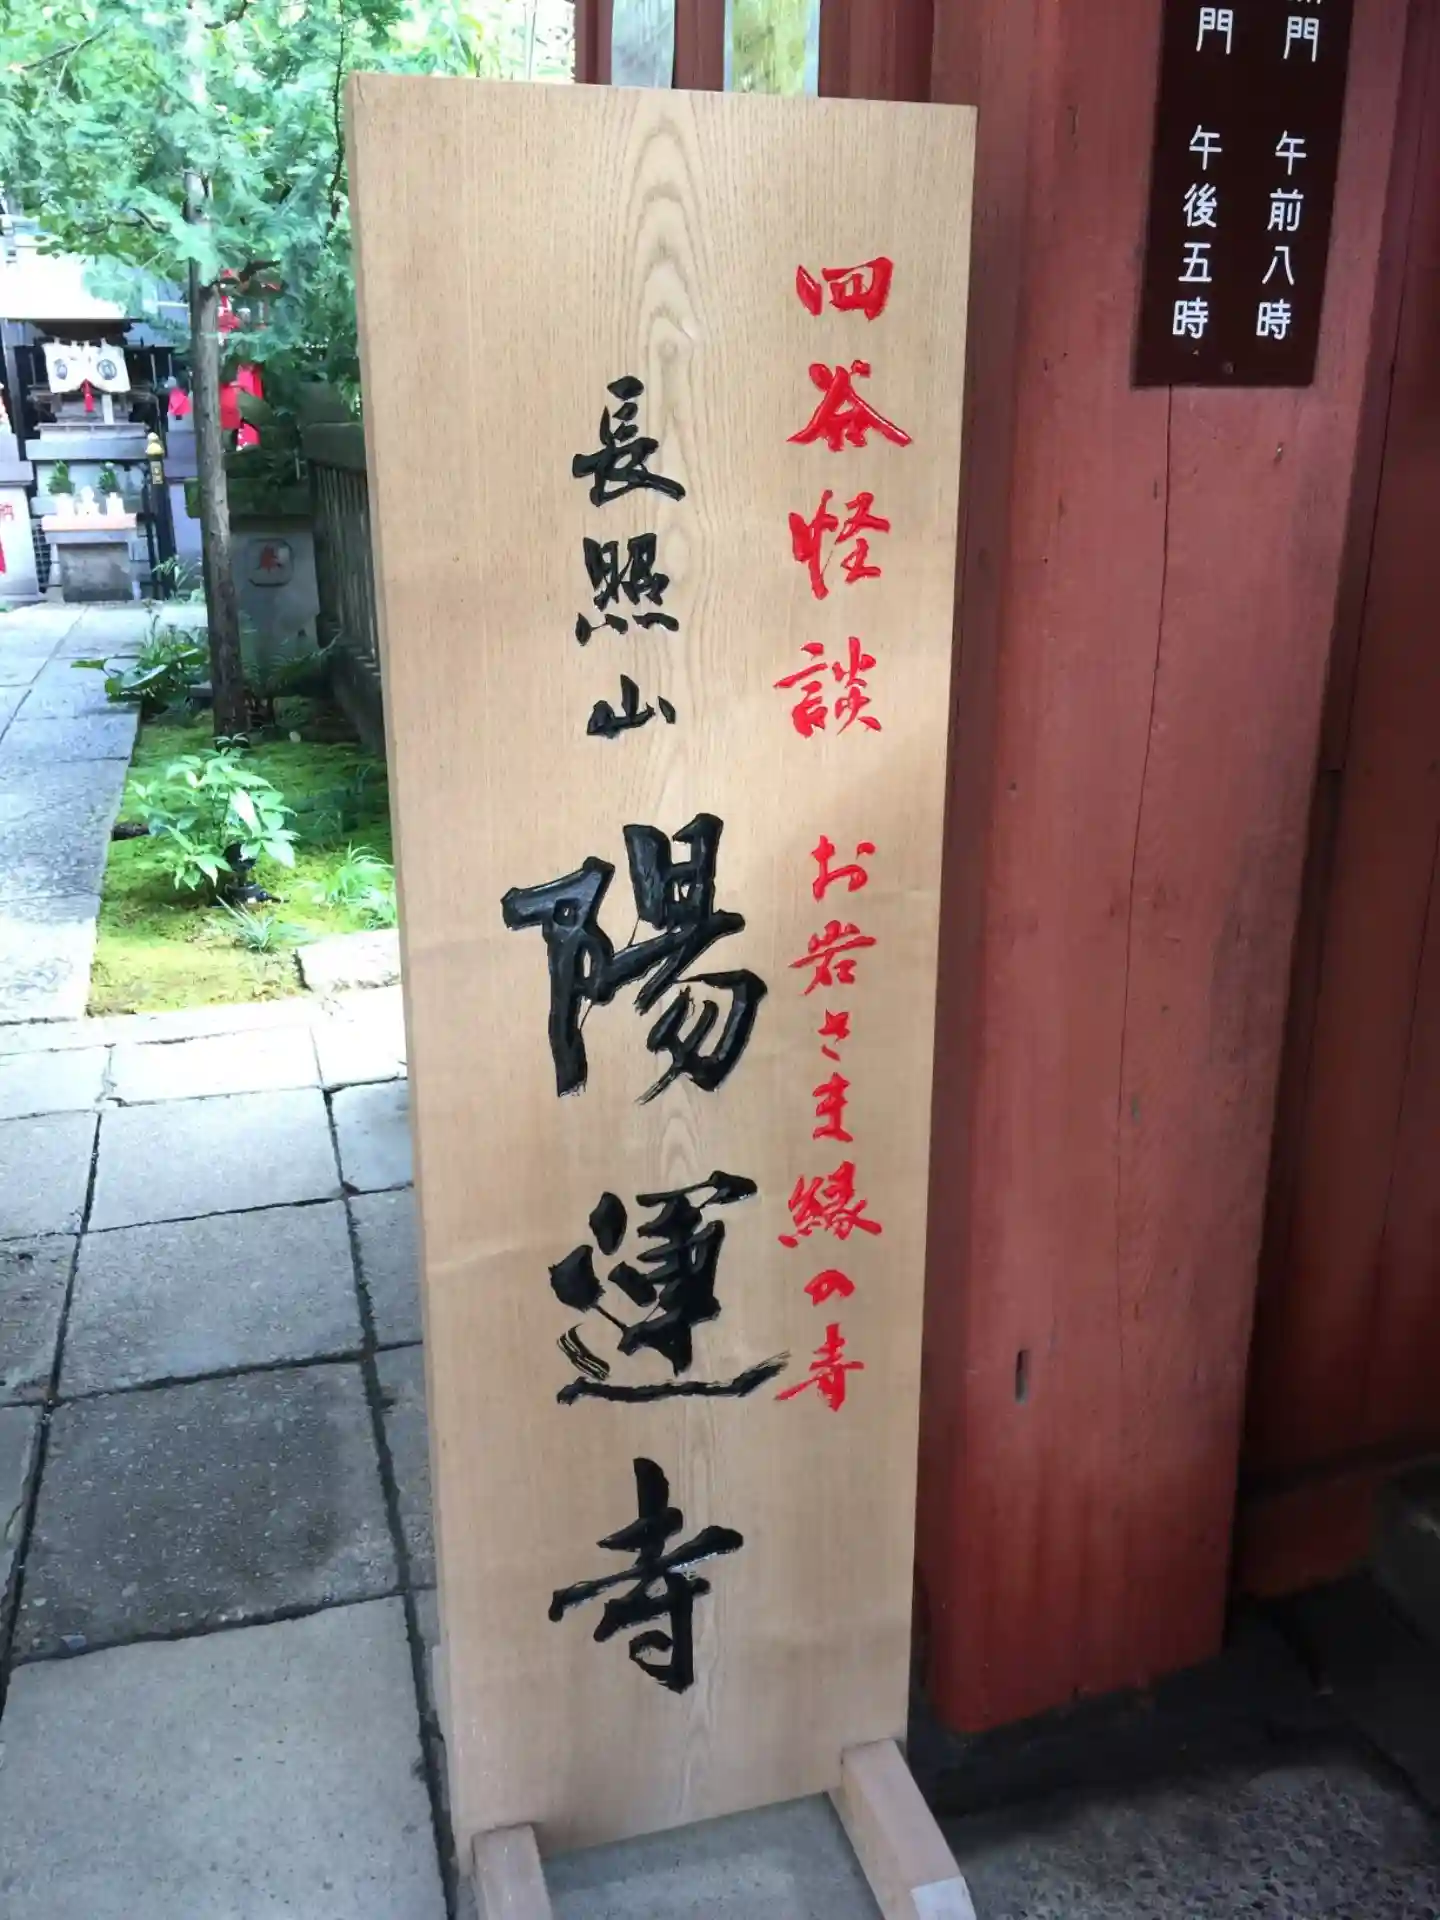 門 午前八時
門 午後五時
四谷怪談 お岩さま縁の寺
長照山 陽運寺
奉